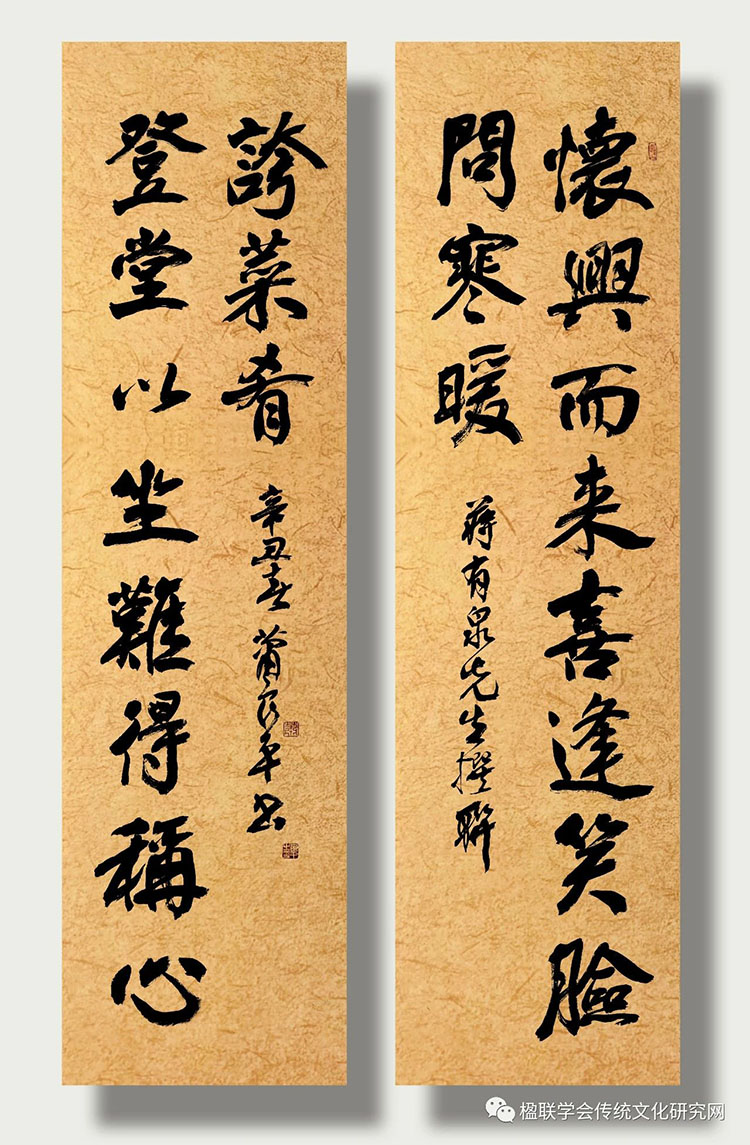 懷興而来喜逢笑臉
問寒暖
蔣有泉先生撰聯
登堂以坐難得稱心
誇菜肴
辛丑春蕭良平书
楹联学会传统文化研究网